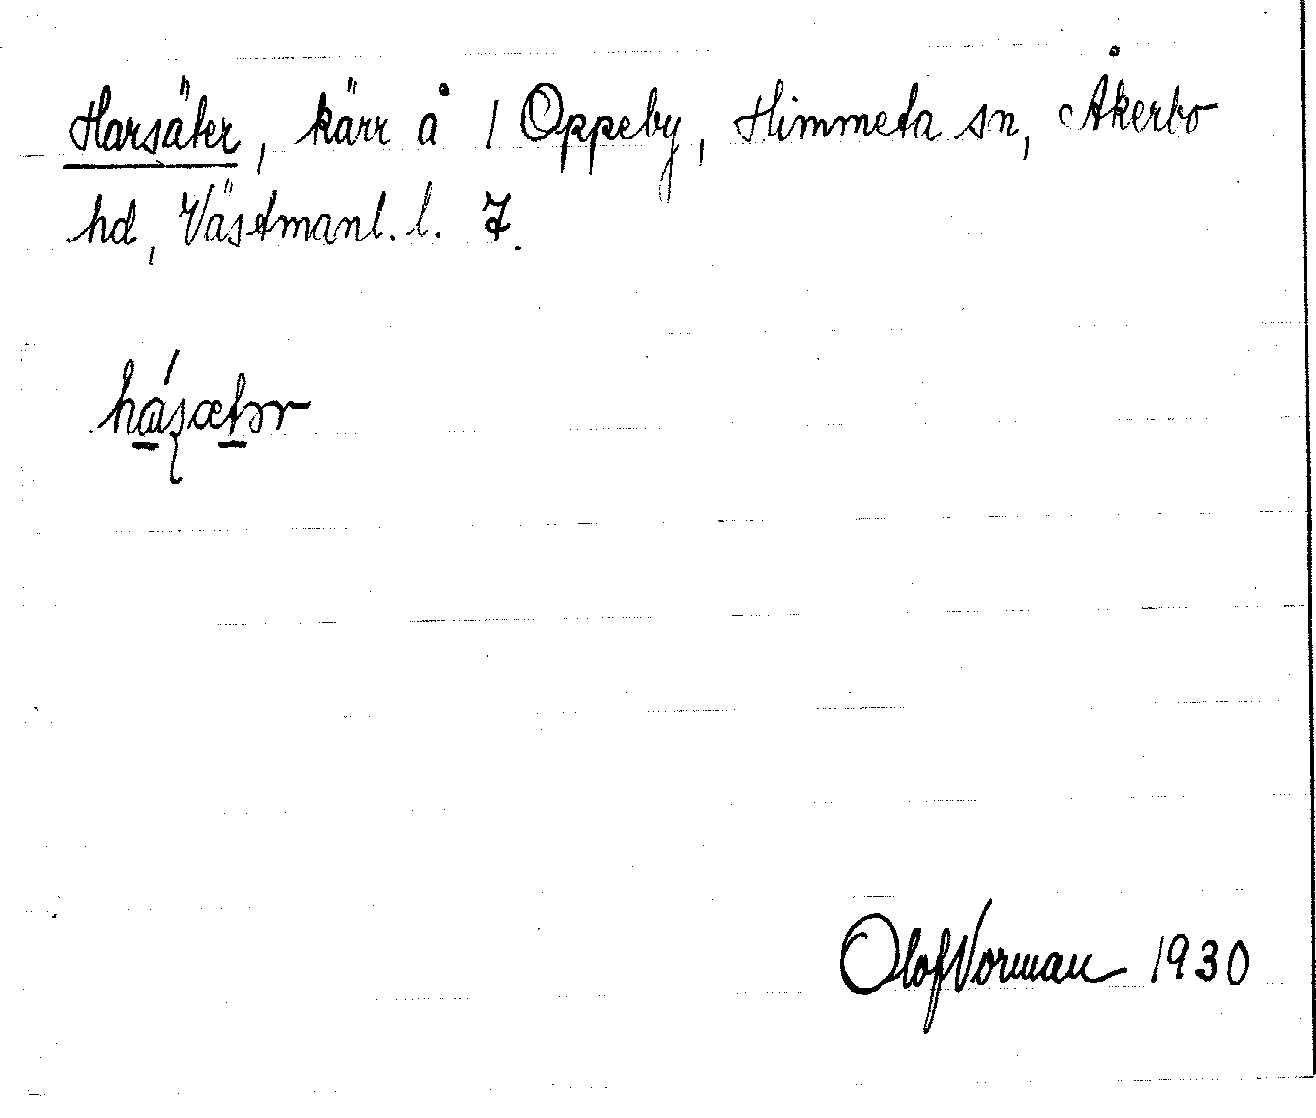 Harsäter, kärr å 1 Oppeby, Himmeta sn, Åkerbo
hd, Västmanl. l. 7.
Olof Norman 1930